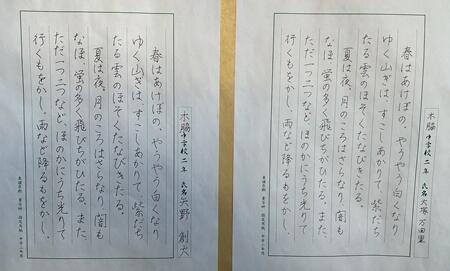 春はあけぼの、やうやう白くなり
ゆく山ぎは、すこしあかりて、紫だち
たる雲のほそくたなびきたる。
夏は夜。月のころはさらなり、闇も
なほ、蛍の多く飛びちがひたる。また、
ただ一つ二つなど、ほのかにうち光りて
行くもをかし。雨など降るもをかし。
木脇中学校二年 氏名 大塚 万由里
春はあけぼの、やうやう白くなり
ゆく山ぎは、すこしあかりて、紫だち
たる雲のほそくたなびきたる。
夏は夜。月のころはさらなり、闇も
なほ、蛍の多く飛びちがひたる。また、
ただ一つ二つなど、ほのかにうち光りて
行くもをかし。雨など降るもをかし。
木脇中学校二年 氏名 矢野 創大